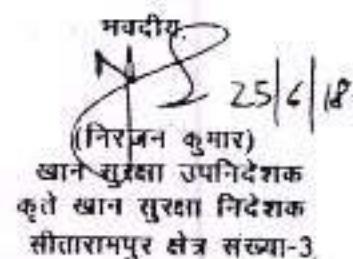 भवदीय,
25/6/18
(निरंजन कुमार)
खान सुरक्षा उपनिदेशक
कृते खान सुरक्षा निदेशक
सीतारामपुर क्षेत्र संख्या-3